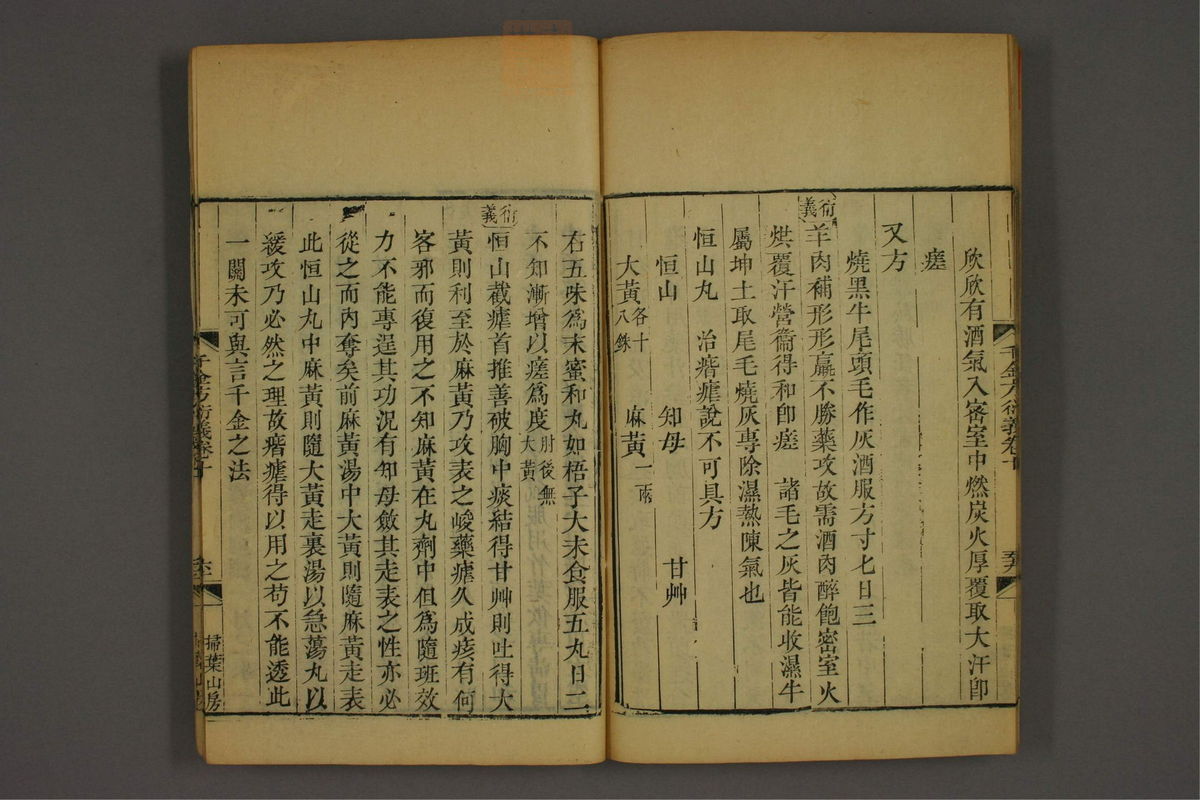 欣欣有酒氣入密室中燃炭火厚覆取大汗卽
瘥
又方
燒黑牛尾頭毛作灰酒服方寸匕日三
衍義
羊肉補形形羸不勝藥攻故需酒肉醉飽密室火
烘覆汗營衞得和卽瘥 諸毛之灰皆能收濕牛
屬坤土取尾毛燒灰專除濕熱陳氣也
恒山丸 治瘧瘧說不可具方
恒山 知母 甘艸
大黃各十八銖 麻黃一兩
千金方衍義卷十
右五味爲末蜜和丸如梧子大未食服五丸日二
不知漸增以瘥爲度肘後無大黃
衍義
恒山截瘧首推善破胸中痰結得甘艸則吐得大
黃則利至於麻黃乃攻表之峻藥瘧久成痎有何
客邪而復用之不知麻黃在丸劑中但爲隨班效
力不能專逞其功況有知母斂其走表之性亦必
從之而內奪矣前麻黃湯中大黃則隨麻黃走表
此恒山丸中麻黃則隨大黃走裏湯以急蕩丸以
緩攻乃必然之理故瘖瘧得以用之苟不能透此
一關未可與言千金之法
千金方衍義卷十
掃葉山房